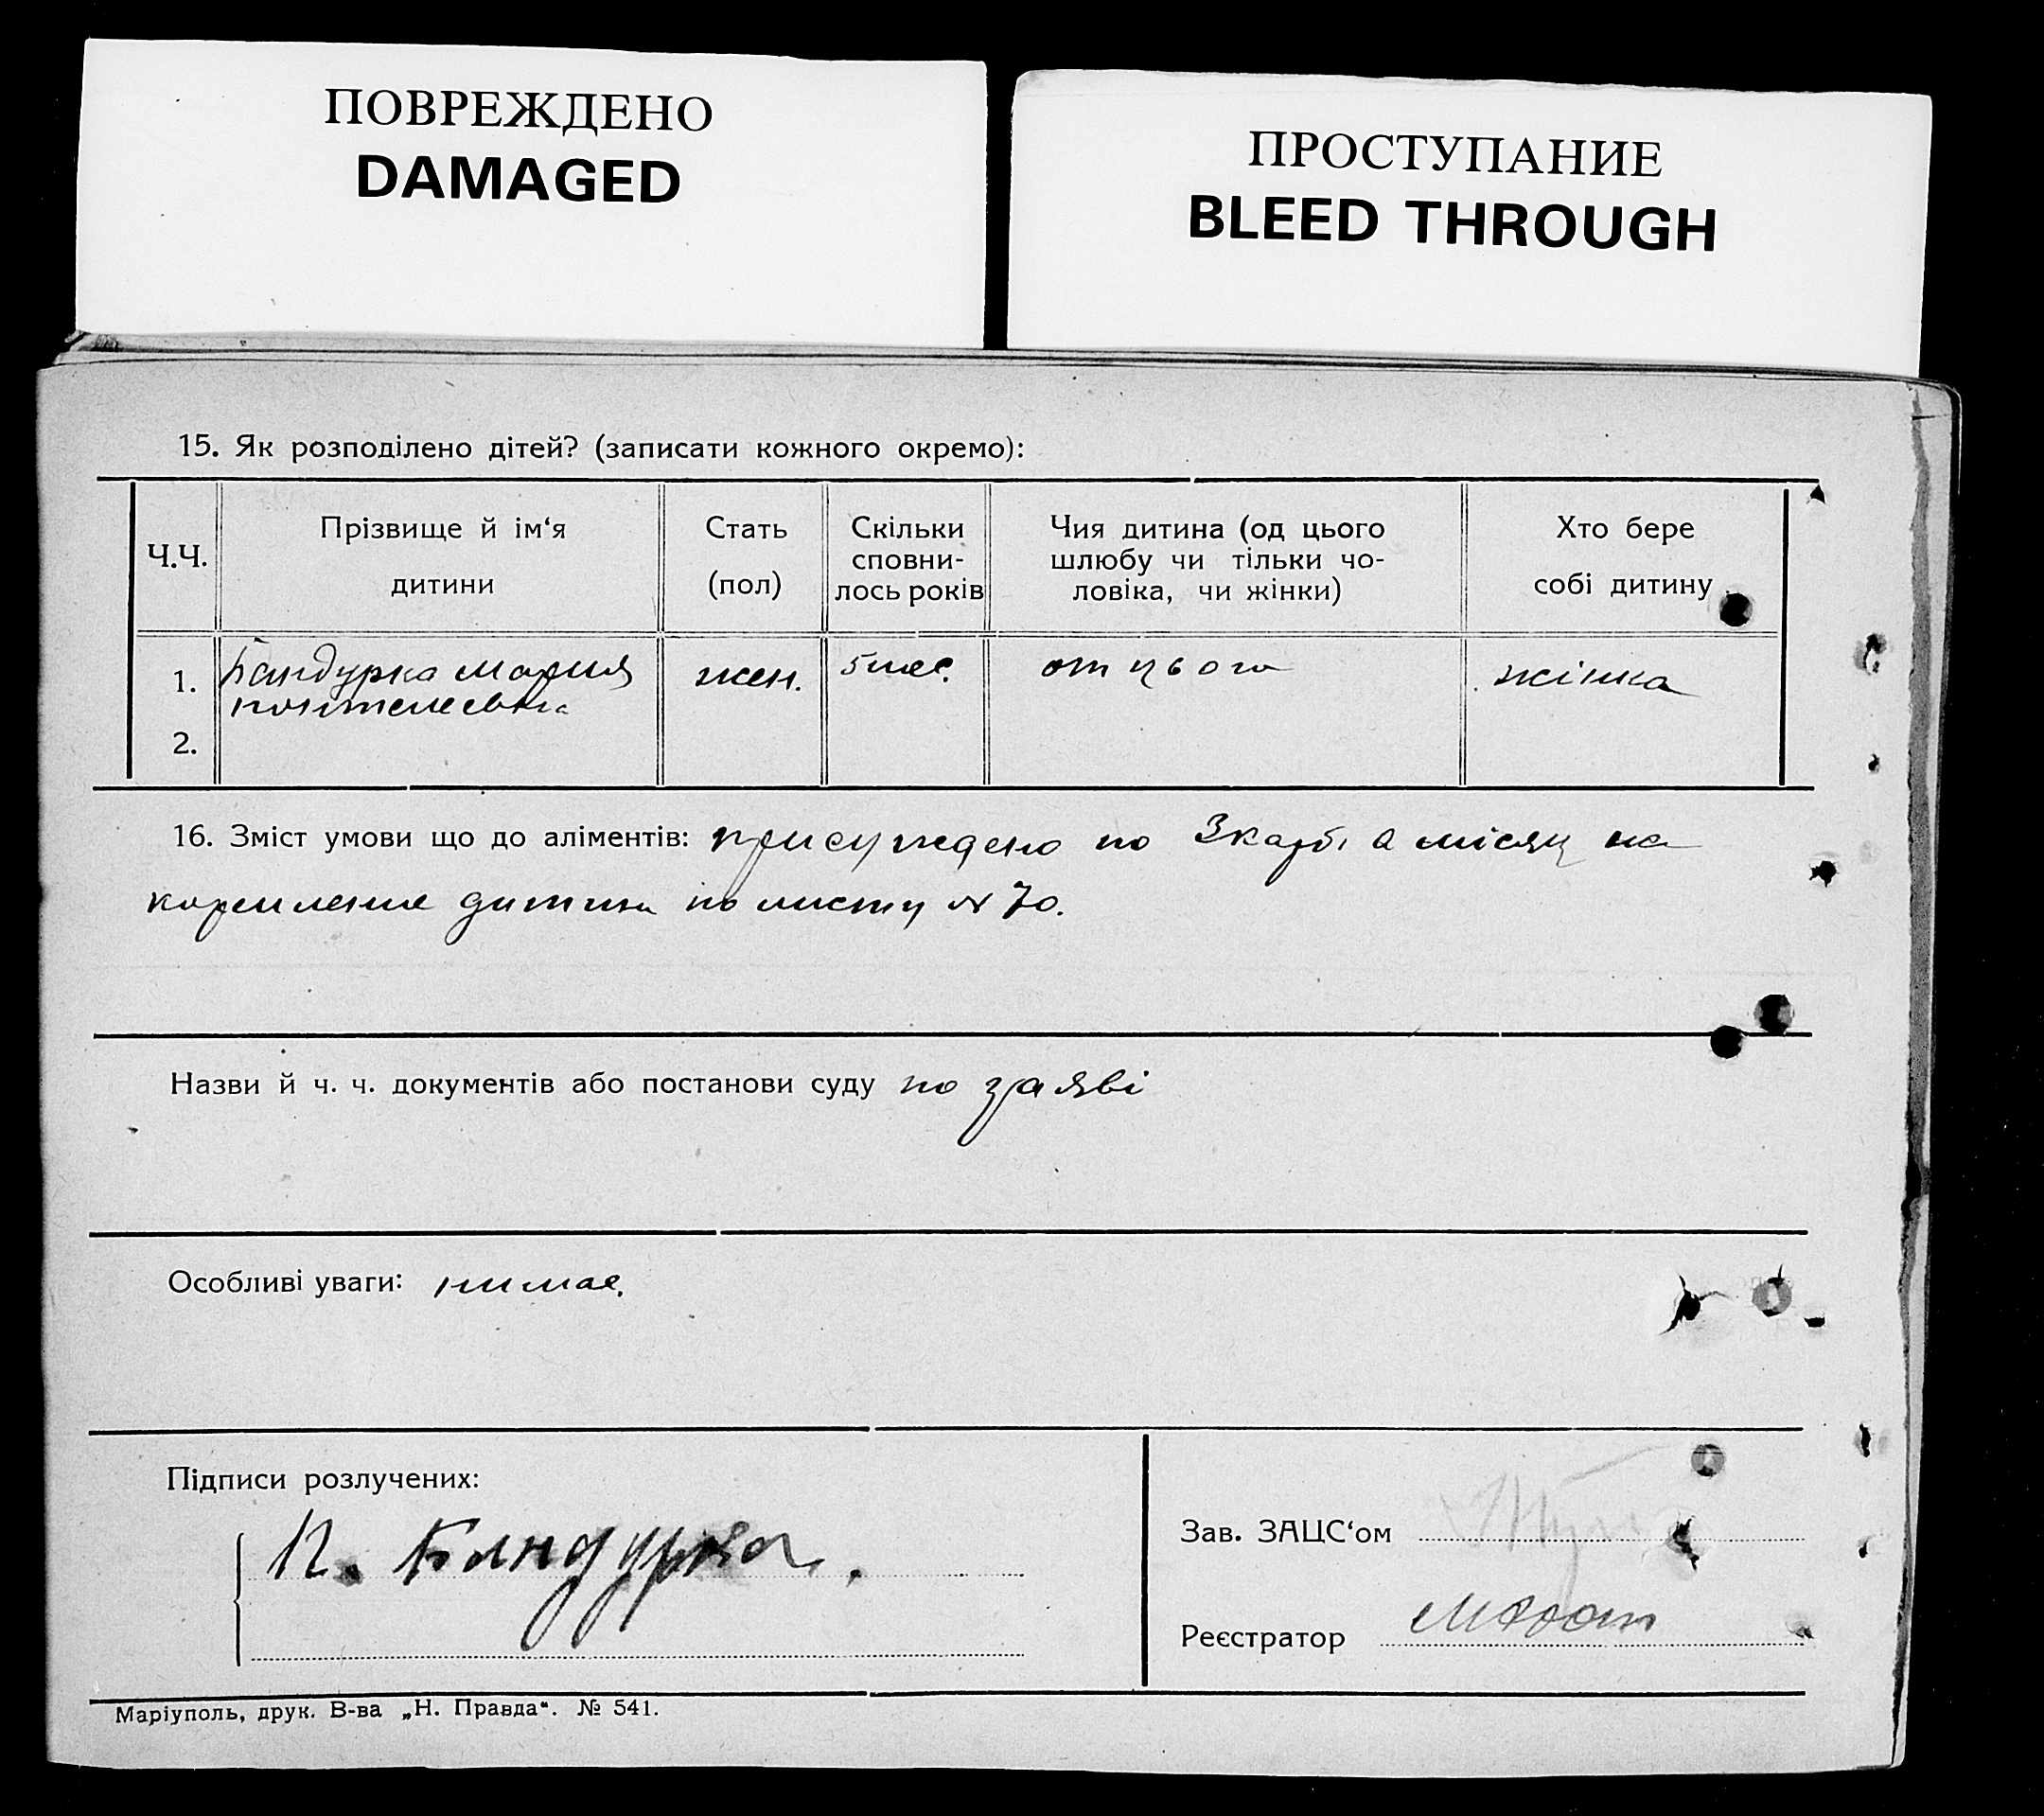 ПОВРЕЖДЕНО
DAMAGED
ПРОСТУПАНИЕ
BLEED THROUGH
15. Як розподілено дітей? (записати кожного окремо):
Ч.Ч.
Прізвище й ім‘я
дитини
Стать
(пол)
Скільки
сповни-
лось років
Чия дитина (од цього
шлюбу чи тільки чо-
ловіка, чи жінки)
Хто бере
собі дитину
1. Бандурка Мария
жен.
5 мес.
от цього
жінка
2.
16. Зміст умови що до аліментів: присуждено по 3 карб. в місяц на
кормление дитини по листу № 70.
Назви й ч. ч. документів або постанови суду по заяві
Особливі уваги: нимае.
Підписи розлучених:
П. Бандурка.
Зав. ЗАЦС‘ом
Реєстратор
Маріуполь, друк. В-ва „Н. Правда“. № 541.